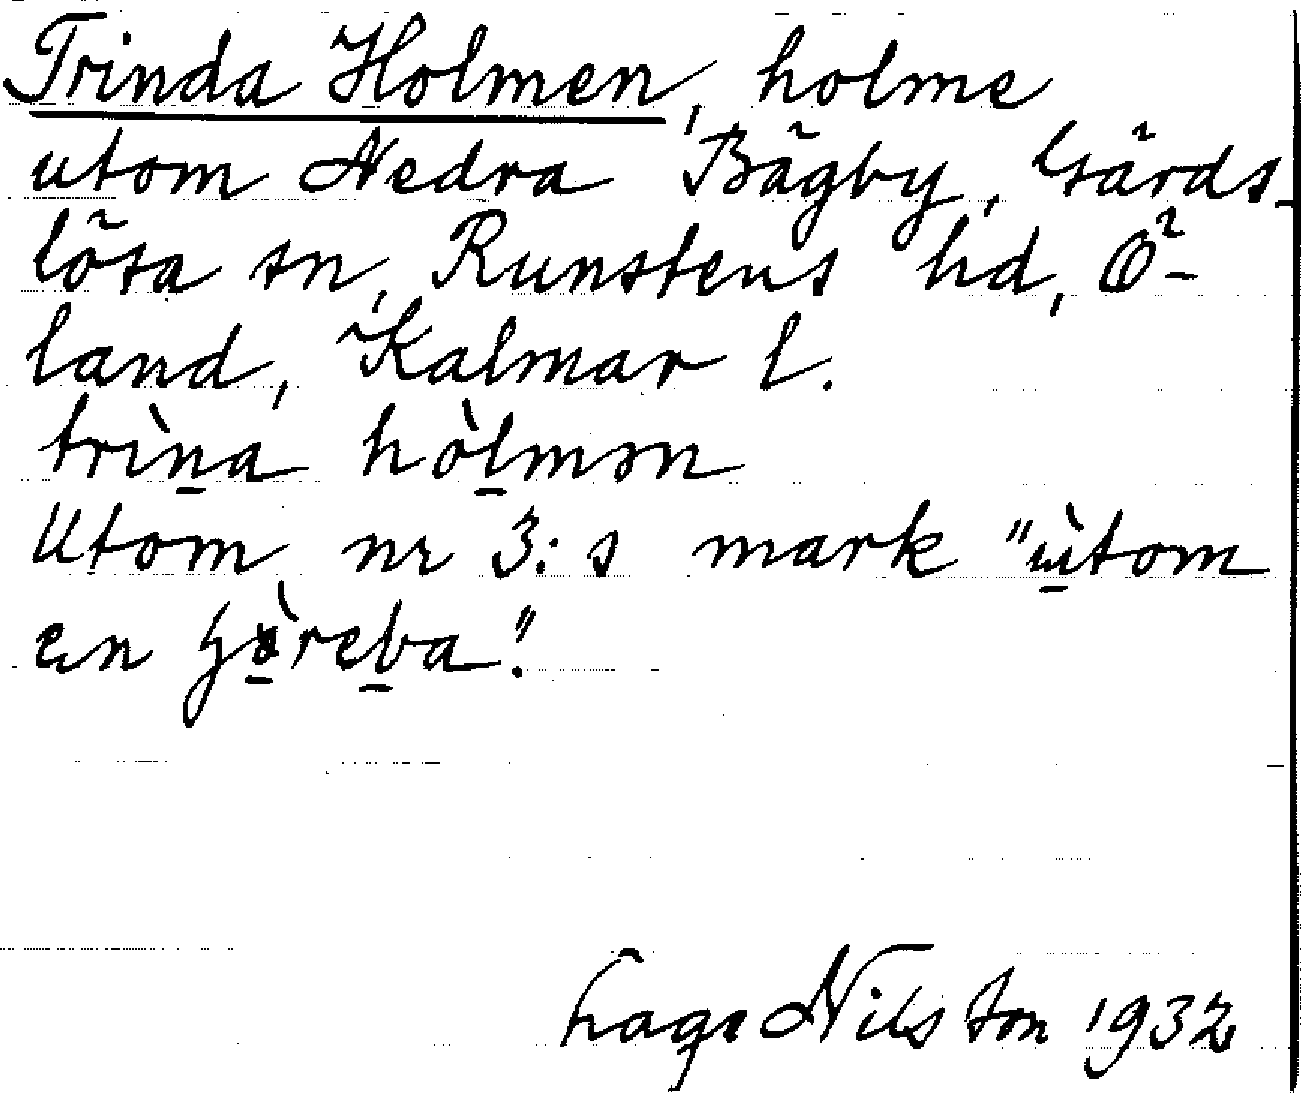 Trinda Holmen, holme
utom Nedra Bägby, Gärds-
lösa sn, Runstens hd, Ö-
land, Kalmar l.
trìṉa hòḻmən
Utom nr 3:s mark "u̱̇̀tom
en gö̱̀reḇa".
Nilsson 1932